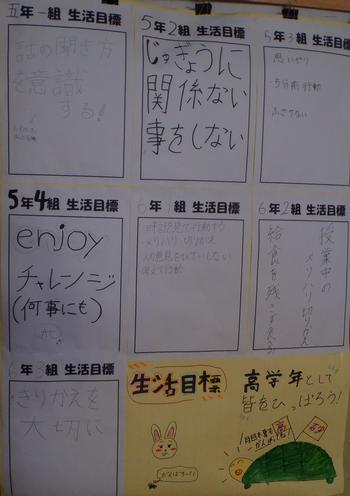 五年一組 生活目標
話の聞き方
を意識
する!
5年2組 生活目標
じゅぎょうに
関係ない
事をしない
5年3組 生活目標
思いやり
5分前行動
ふざけない
5年4組 生活目標
enjoy
チャレンジ
(何事にも)
6年1組 生活目標
時計を見て行動する
メリハリ 切りかえ
考えて行動
6年2組 生活目標
授業中の
メリハリ切りかえ
給食を残こさない
6年3組 生活目標
きりかえを
大切に
生活目標
高学年として
皆をひっぱろう!
がんばろー!